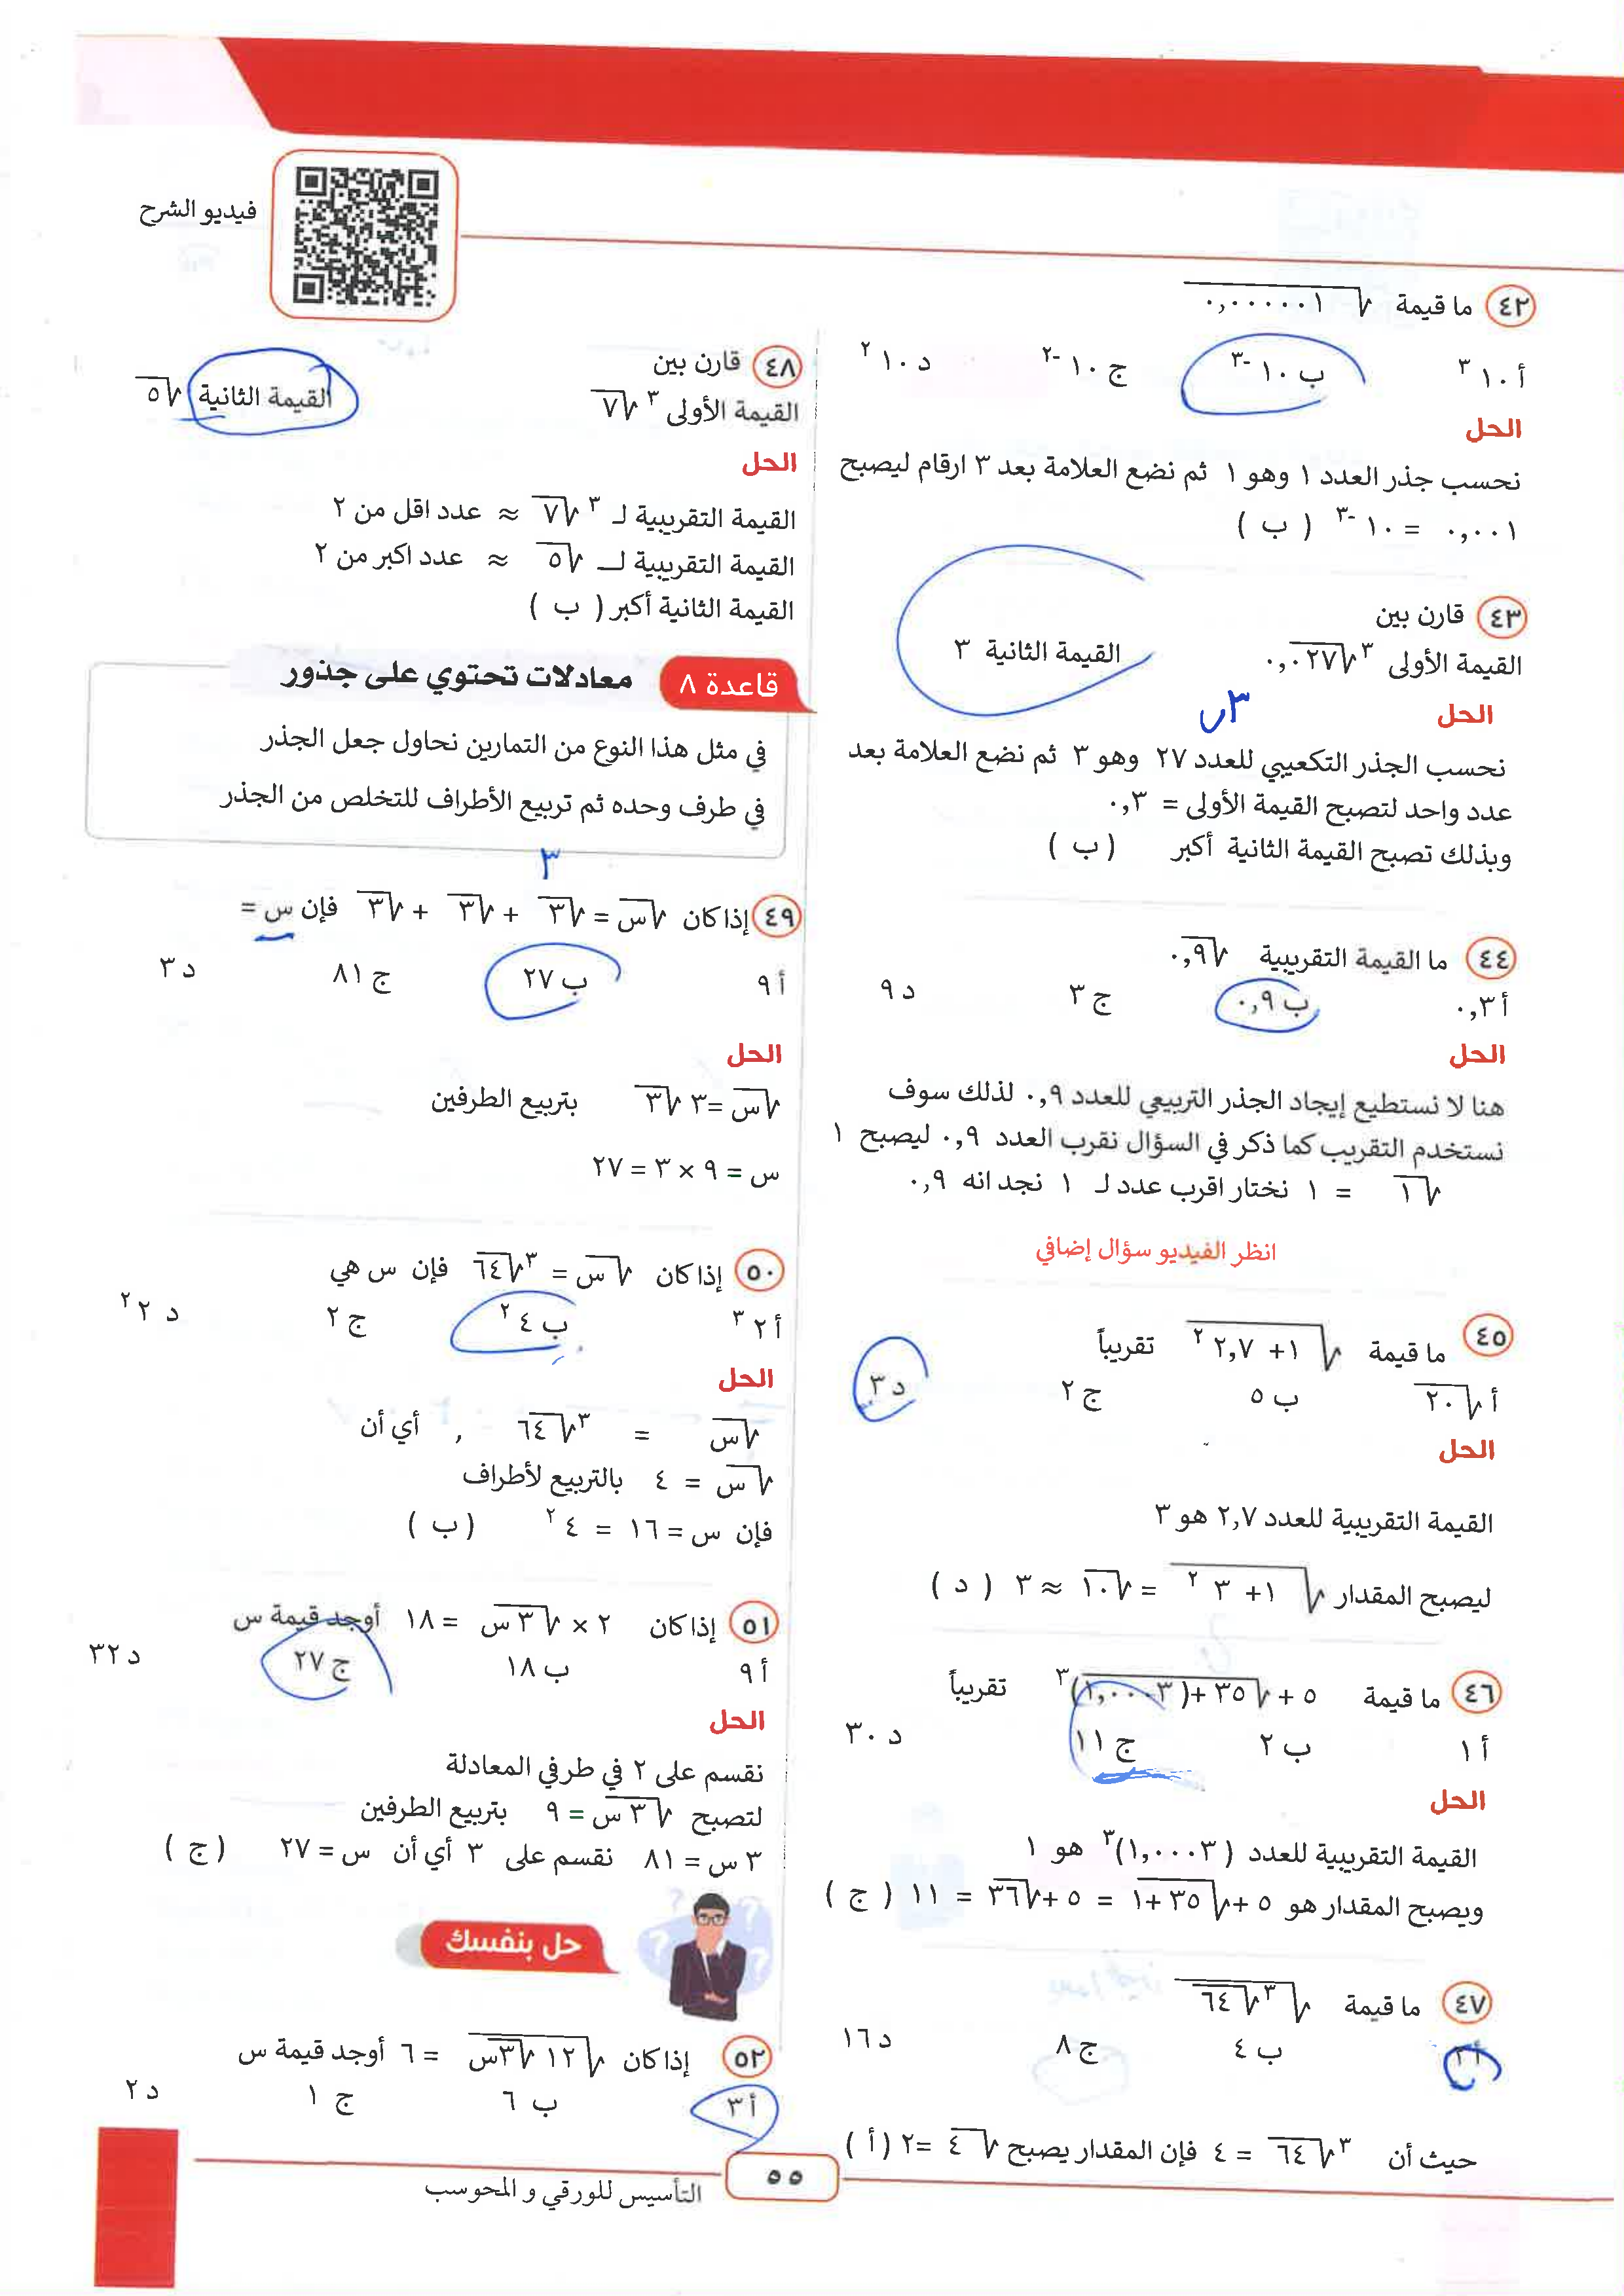 فيديو الشرح
٤٢ ما قيمة √٠,٠٠٠٠٠١
أ ١٠^٣ ب ١٠^-٣ ج ١٠^-٢ د ١٠^٢
الحل
نحسب جذر العدد ١ وهو ١ ثم نضع العلامة بعد ٣ ارقام ليصبح
٠,٠٠١ = ١٠^-٣ ( ب )
٤٣ قارن بين
القيمة الأولى ∛٠,٠٢٧ القيمة الثانية ٣
٣ر
الحل
نحسب الجذر التكعيبي للعدد ٢٧ وهو ٣ ثم نضع العلامة بعد
عدد واحد لتصبح القيمة الأولى = ٠,٣
وبذلك تصبح القيمة الثانية أكبر ( ب )
٤٤ ما القيمة التقريبية √٠,٩
أ ٠,٣ ب ٠,٩ ج ٣ د ٩
الحل
هنا لا نستطيع إيجاد الجذر التربيعي للعدد ٠,٩ لذلك سوف
نستخدم التقريب كما ذكر في السؤال نقرب العدد ٠,٩ ليصبح ١
√١ = ١ نختار اقرب عدد لـ ١ نجد انه ٠,٩
انظر الفيديو سؤال إضافي
٤٥ ما قيمة √(١+ ٢,٧^٢) تقريباً
أ √٢٠ ب ٥ ج ٢ د ٣
الحل
القيمة التقريبية للعدد ٢,٧ هو ٣
ليصبح المقدار √(١+ ٣^٢) = √١٠ ≈ ٣ ( د )
٤٦ ما قيمة ٥ + √(٣٥ +(١,٠٠٠٣)^٣) تقريباً
أ ١ ب ٢ ج ١١ د ٣٠
الحل
القيمة التقريبية للعدد (١,٠٠٠٣)^٣ هو ١
ويصبح المقدار هو ٥ +√(٣٥ +١) = ٥ +√٣٦ = ١١ ( ج )
٤٧ ما قيمة √∛٦٤
أ ٢ ب ٤ ج ٨ د ١٦
حيث أن ∛٦٤ = ٤ فإن المقدار يصبح √٤ =٢ ( أ )
٤٨ قارن بين
القيمة الأولى ∛٧ القيمة الثانية √٥
الحل
القيمة التقريبية لـ ∛٧ ≈ عدد اقل من ٢
القيمة التقريبية لـ √٥ ≈ عدد اكبر من ٢
القيمة الثانية أكبر ( ب )
قاعدة ٨ معادلات تحتوي على جذور
في مثل هذا النوع من التمارين نحاول جعل الجذر
في طرف وحده ثم تربيع الأطراف للتخلص من الجذر
٣
٤٩ إذا كان √س = √٣ + √٣ + √٣ فإن س =
أ ٩ ب ٢٧ ج ٨١ د ٣
الحل
√س =٣ √٣ بتربيع الطرفين
س = ٩ × ٣ = ٢٧
٥٠ إذا كان √س = ∛٦٤ فإن س هي
أ ٢^٣ ب ٤^٢ ج ٢ د ٢^٢
الحل
√س = ∛٦٤ , أي أن
√س = ٤ بالتربيع لأطراف
فإن س = ١٦ = ٤^٢ ( ب )
٥١ إذا كان ٢ × √٣س = ١٨ أوجد قيمة س
أ ٩ ب ١٨ ج ٢٧ د ٣٢
الحل
نقسم على ٢ في طرفي المعادلة
لتصبح √٣س = ٩ بتربيع الطرفين
٣ س = ٨١ نقسم على ٣ أي أن س = ٢٧ ( ج )
حل بنفسك
٥٢ إذا كان √(١٢ √٣س) = ٦ أوجد قيمة س
أ ٣ ب ٦ ج ١ د ٢
٥٥
التأسيس للورقي و المحوسب